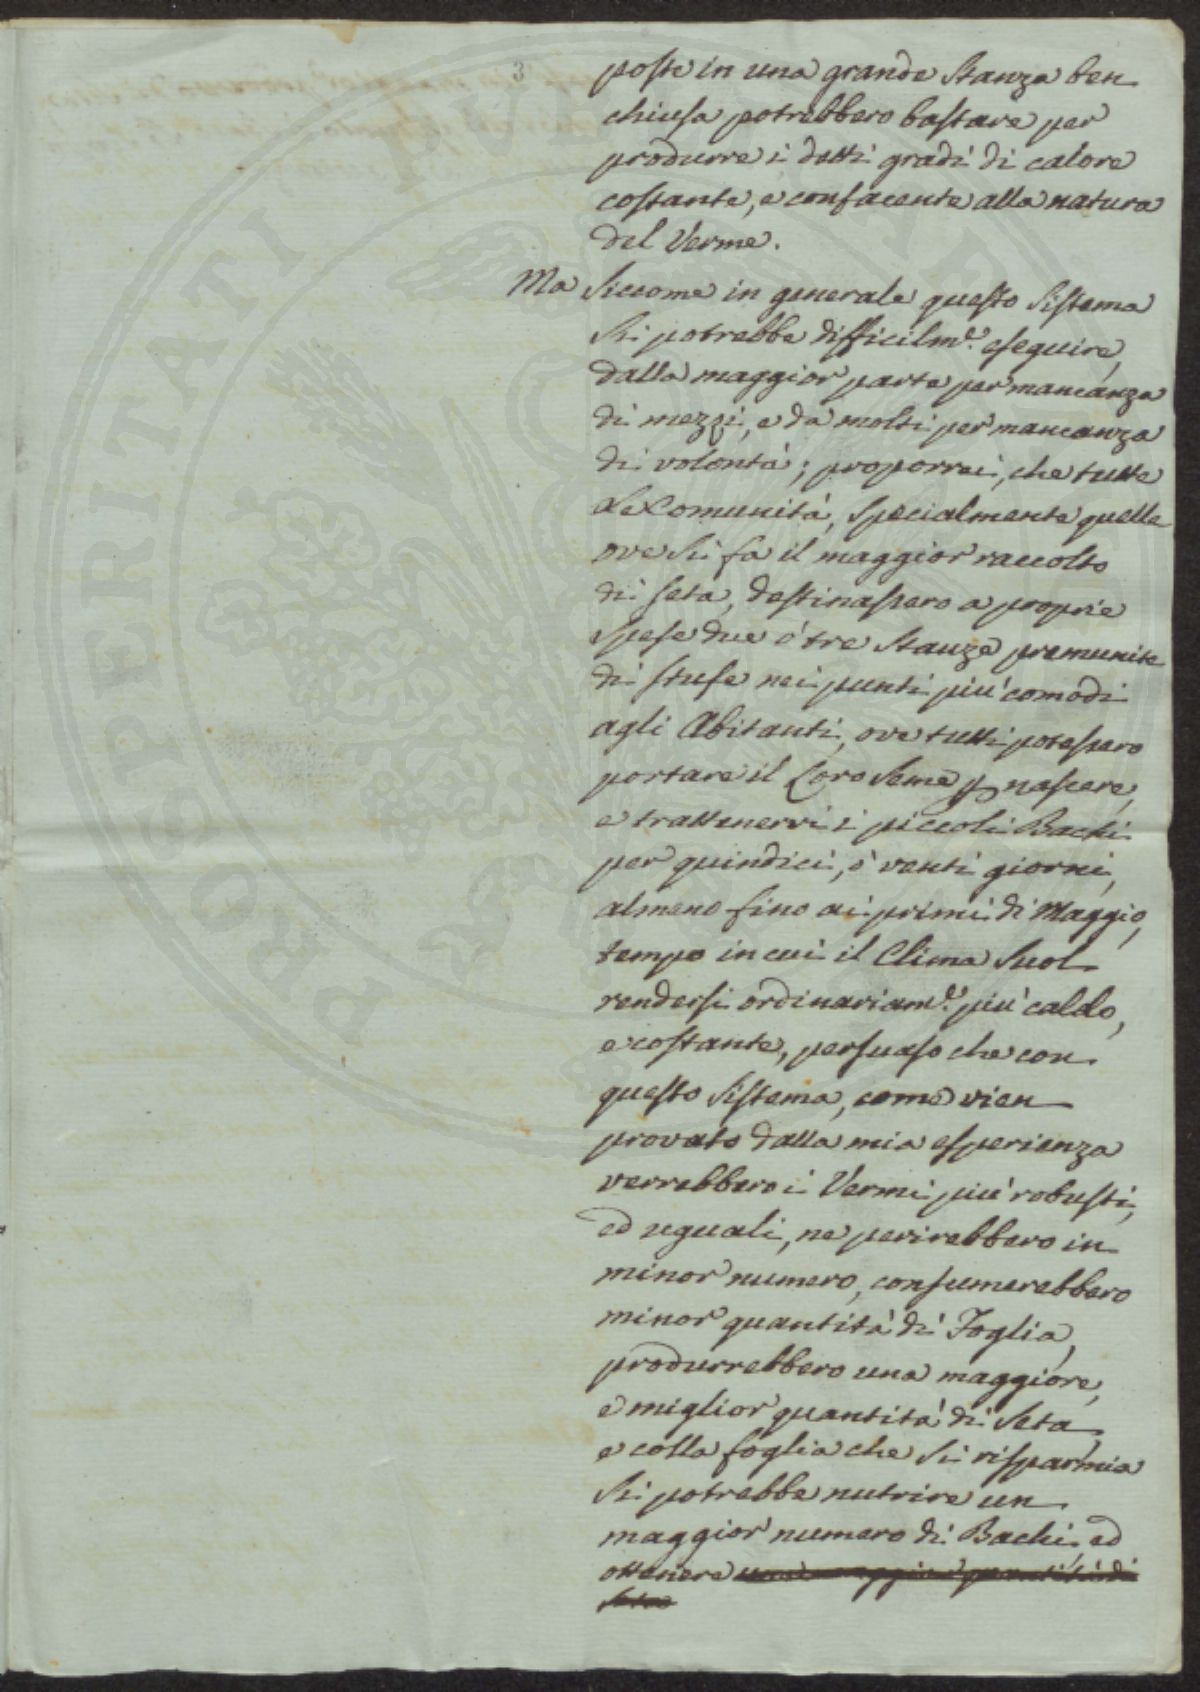 3
poste in una grande Stanza ben
chiusa potrebbero bastare per
produrre i detti gradi di calore
costante, e confacente alla natura
del Verme.
Ma Siccome in generale questo Sistema
Si potrebbe difficilm.e eseguire,
dalla maggior parte per mancanza
di mezzi, e da molti per mancanza
di volontà; proporrei, che tutte
Le Comunità, Specialmente quelle
ove Si fa il maggior raccolto
di Seta, destinassero a proprie
Spese due ò tre Stanze premunite
di stufe nei punti più comodi
agli Abitanti, ove tutti potessero
portare il Loro Seme p nascere,
e trattenervi i piccoli Bachi
per quindici, ò venti giorni,
almeno fino ai primi di Maggio,
tempo in cui il Clima Suol
rendersi ordinariam.e più caldo,
e costante, persuaso che con
questo Sistema, come vien
provato dalla mia esperienza
verrebbero i Vermi più robusti,
ed uguali, ne perirebbero in
minor numero, consumerebbero
minor quantità di Foglia,
produrrebbero una maggiore,
e miglior quantità di Seta,
e colla foglia che Si risparmia
Si potrebbe nutrire un
maggior numero di Bachi, ed
ottenere una maggior quantità di
Seta
PROSPERITATI PUBLICAE